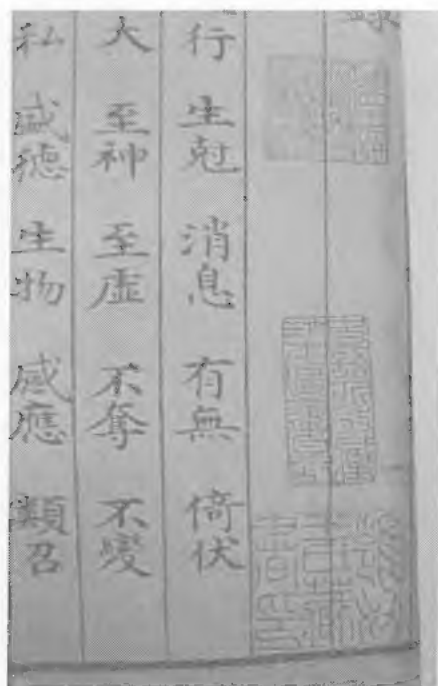 錄
行 生尅 消息 有無 倚伏
大 至神 至虛 不奪 不變
私 盛德 生物 感應 類召